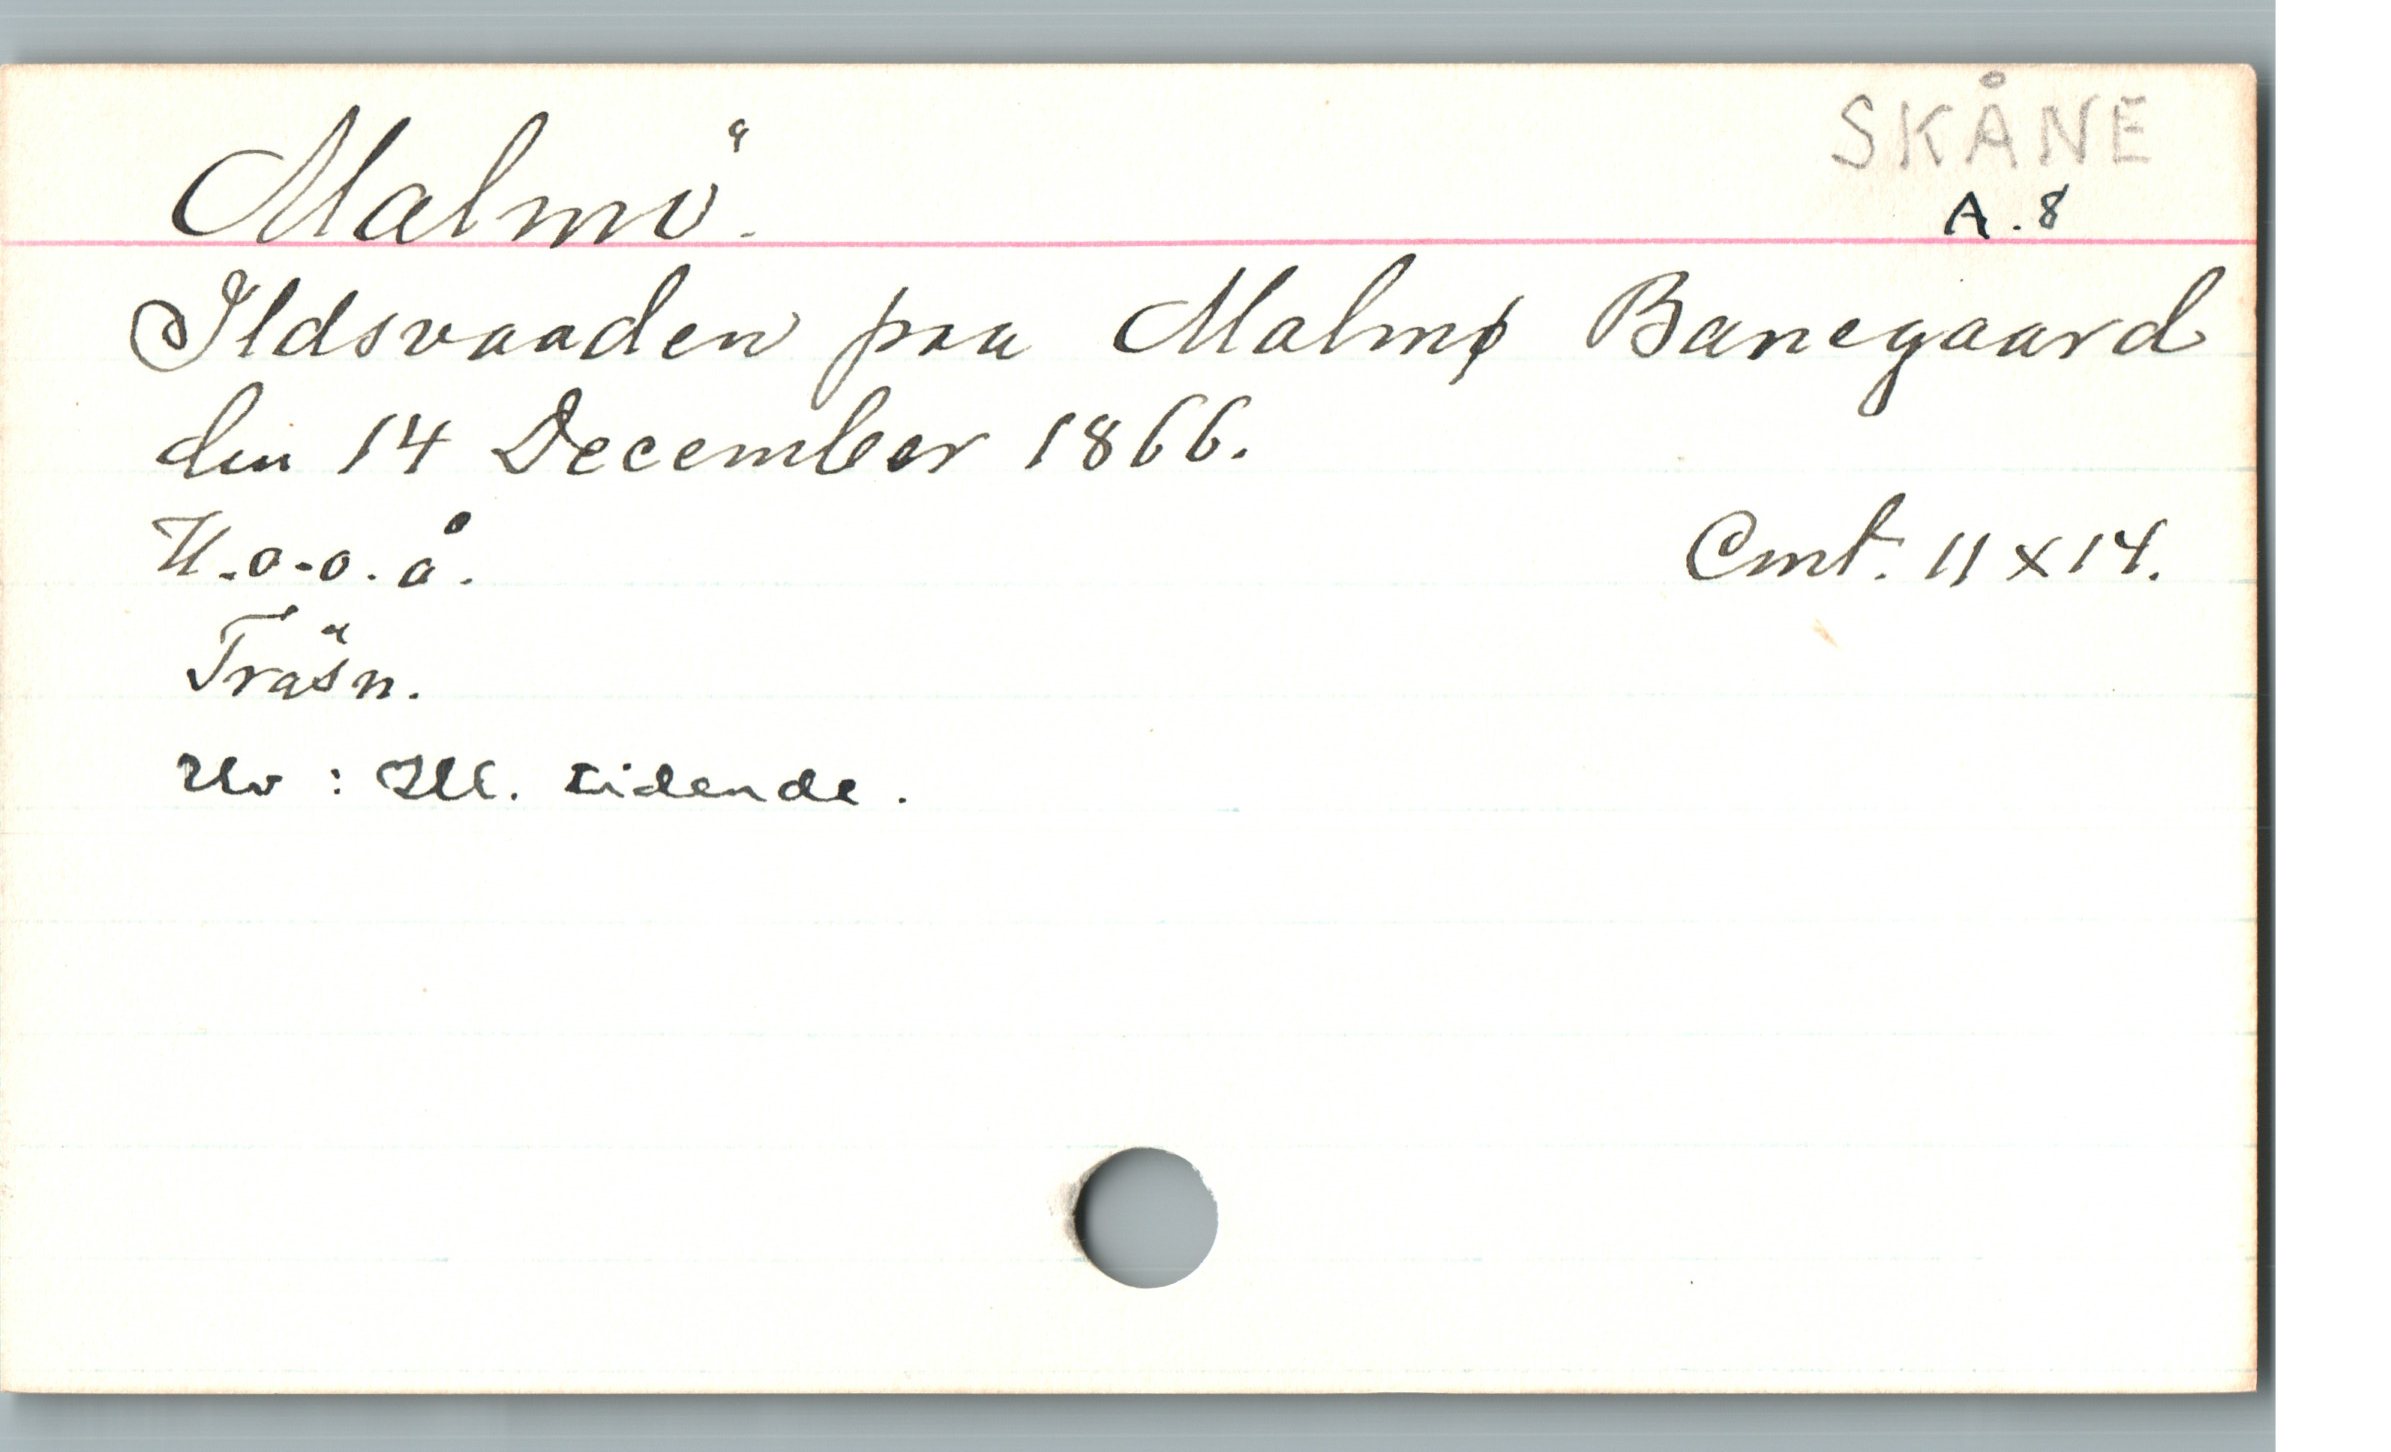 SKÅNE
Malmö.
A.8
Ildsvaaden paa Malmø Banegaard
den 14 December 1866.
U.o.o.å. Cmt. 11 x 14.
Träsn.
Ur : Ill. tidende.